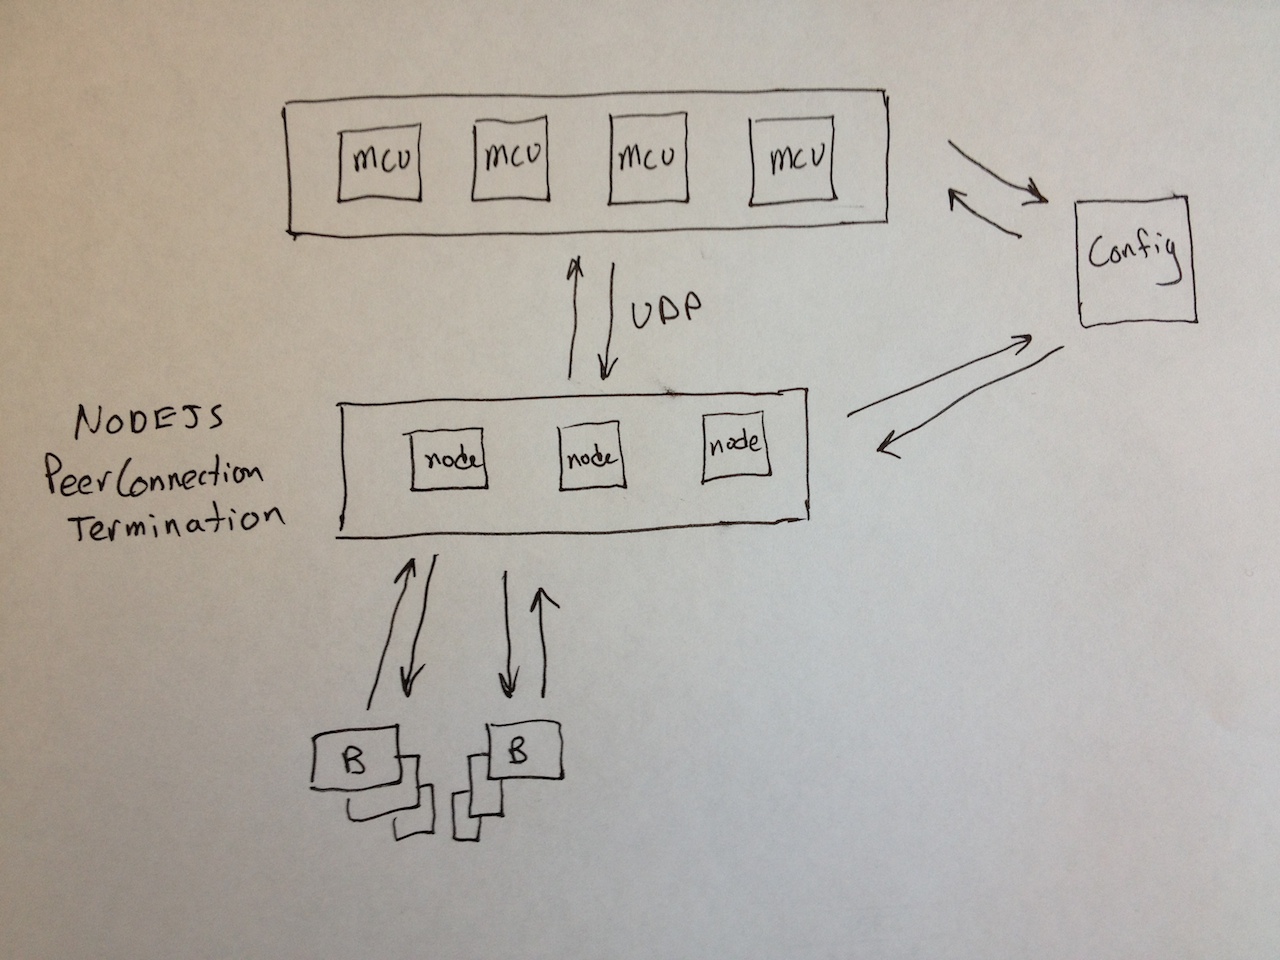 mcu mcu mcu mcu
Config
UDP
NODEJS
PeerConnection
Termination
node node node
B B